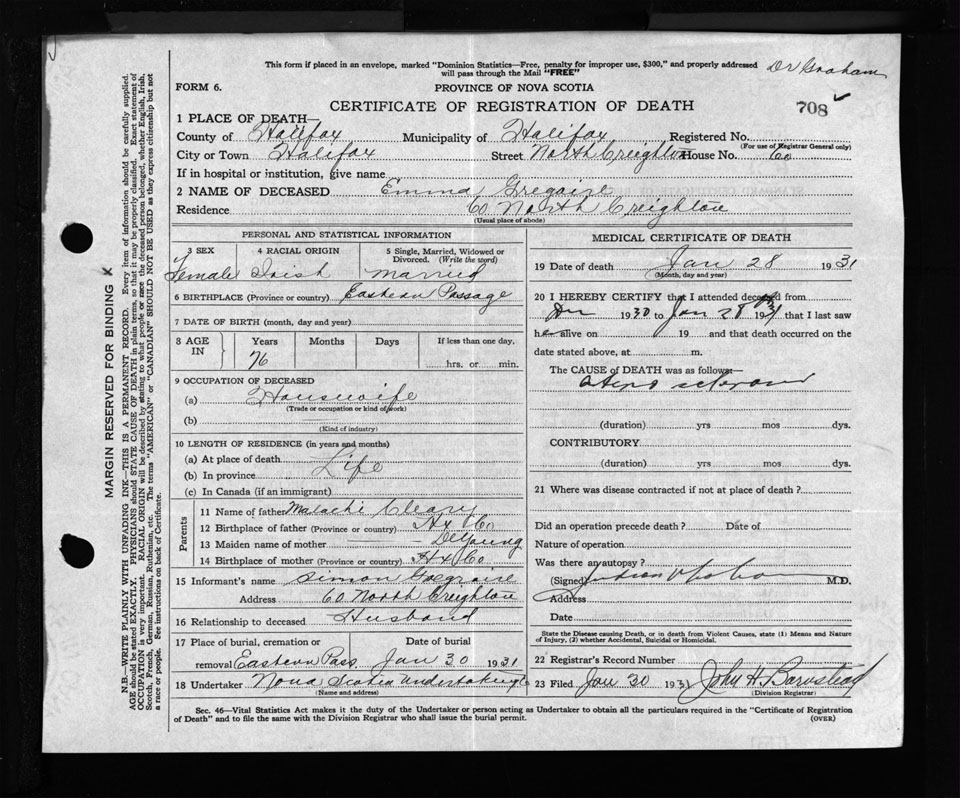 This form if placed in an envelope, marked "Dominion Statistics—Free, penalty for improper use, $300," and properly addressed
will pass through the Mail "FREE"
Dr Graham
FORM 6.
PROVINCE OF NOVA SCOTIA
CERTIFICATE OF REGISTRATION OF DEATH
708
1 PLACE OF DEATH
County of Halifax Municipality of Halifax Registered No.
(For use of Registrar General only)
City or Town Halifax Street North Creighton House No. 60
If in hospital or institution, give name
2 NAME OF DECEASED Emma Gregoire
Residence 60 North Creighton
(Usual place of abode)
PERSONAL AND STATISTICAL INFORMATION
3 SEX 4 RACIAL ORIGIN 5 Single, Married, Widowed or Divorced. (Write the word)
Female Irish Married
6 BIRTHPLACE (Province or country) Eastern Passage
7 DATE OF BIRTH (month, day and year)
8 AGE IN Years Months Days If less than one day.
76 hrs. or min.
9 OCCUPATION OF DECEASED
(a) Housewife
(Trade or occupation or kind of work)
(b)
(Kind of industry)
10 LENGTH OF RESIDENCE (in years and months)
(a) At place of death
(b) In province Life
(c) In Canada (if an immigrant)
Parents
11 Name of father Malachi Cleary
12 Birthplace of father (Province or country) Hx Co
13 Maiden name of mother — DeYoung
14 Birthplace of mother (Province or country) Hx Co
15 Informant's name Simon Gregoire
Address 60 North Creighton
16 Relationship to deceased Husband
17 Place of burial, cremation or removal Eastern Pass. Date of burial Jan 30 1931
18 Undertaker Nova Scotia Undertaking Co
(Name and address)
MEDICAL CERTIFICATE OF DEATH
19 Date of death Jan 28 1931
(Month, day and year)
20 I HEREBY CERTIFY that I attended deceased from
1930 to Jan 28 1931 that I last saw
her alive on 19 and that death occurred on
date stated above, at m.
The CAUSE of DEATH was as follows:—
(duration) yrs mos dys.
CONTRIBUTORY
(duration) yrs mos dys.
21 Where was disease contracted if not at place of death?
Did an operation precede death? Date of
Nature of operation
Was there an autopsy?
(Signed) M.D.
Address
Date
State the Disease causing Death, or in death from Violent Causes, state (1) Means and Nature
of Injury, (2) whether Accidental, Suicidal or Homicidal.
22 Registrar's Record Number
23 Filed Jan 30 1931 John H. Barnstead
(Division Registrar)
Sec. 46—Vital Statistics Act makes it the duty of the Undertaker or person acting as Undertaker to obtain all the particulars required in the "Certificate of Registration
of Death" and to file the same with the Division Registrar who shall issue the burial permit.
(OVER)
MARGIN RESERVED FOR BINDING
N.B.—WRITE PLAINLY WITH UNFADING INK—THIS IS A PERMANENT RECORD. Every item of information should be carefully supplied.
AGE should be stated EXACTLY. PHYSICIANS should STATE CAUSE OF DEATH in plain terms, so that it may be properly classified. Exact statement of
OCCUPATION is very important. RACIAL ORIGIN will be described by stating to what people or race the deceased person belonged, whether English, Irish,
Scotch, French, German, Russian, Ruthenian, etc. The terms "AMERICAN" or "CANADIAN" SHOULD NOT BE USED as they express citizenship but not
a race or people. See instructions on back of Certificate.